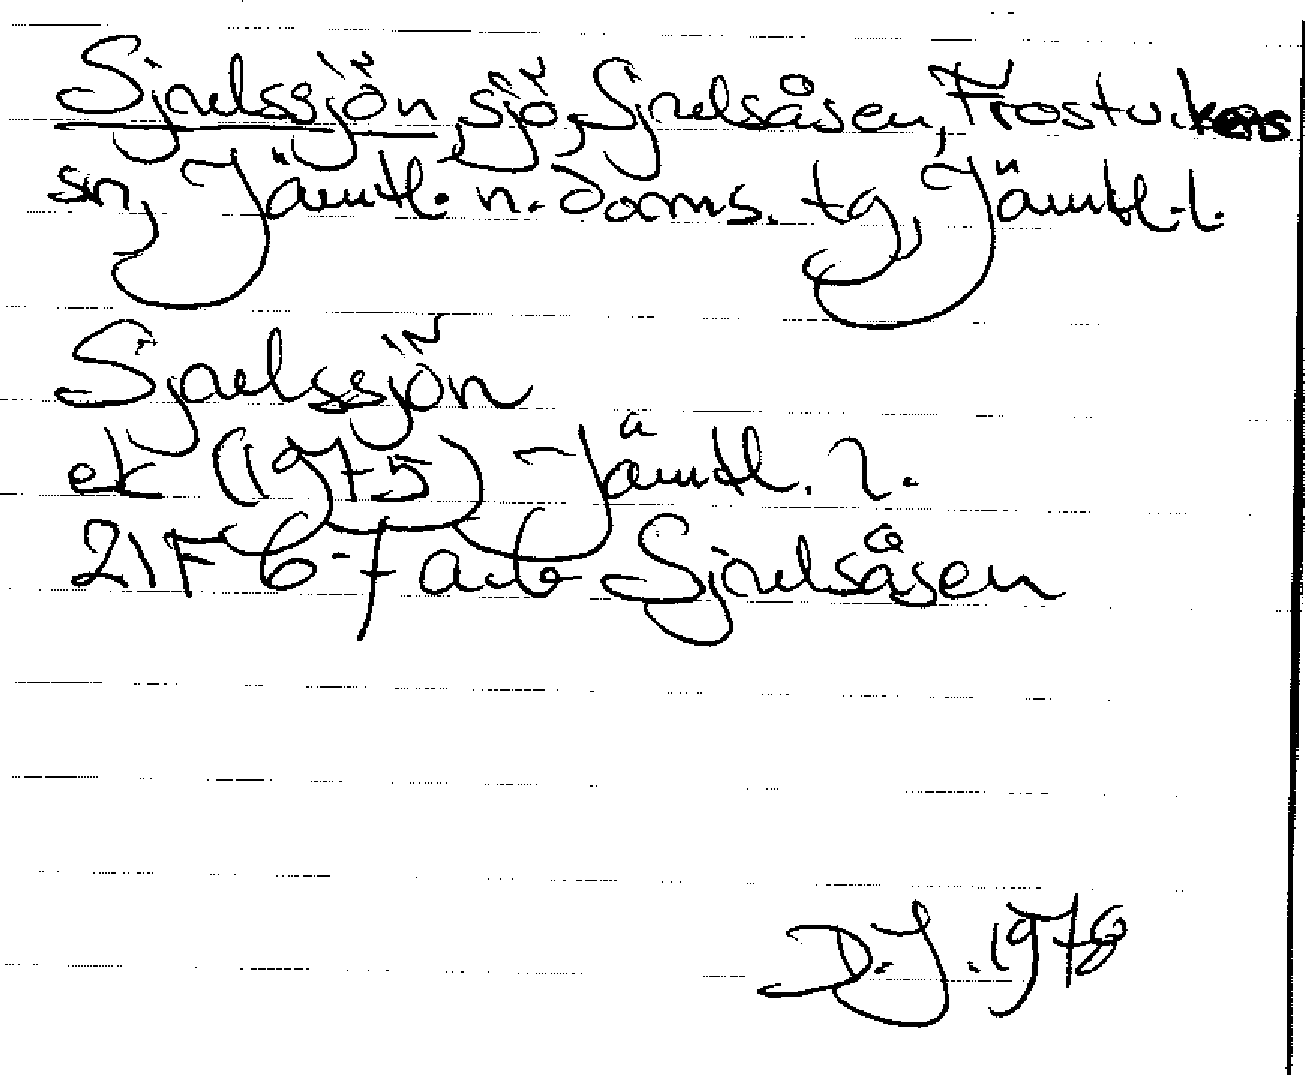 Sjulssjön, sjö, Sjulsåsen, Frostvikens
sn, Jämtl. n. doms. tg, Jämtl. l.
Sjulssjön
ek (1975) Jämtl. l.
21F 6-7 a-b Sjulsåsen
D.J. 1978